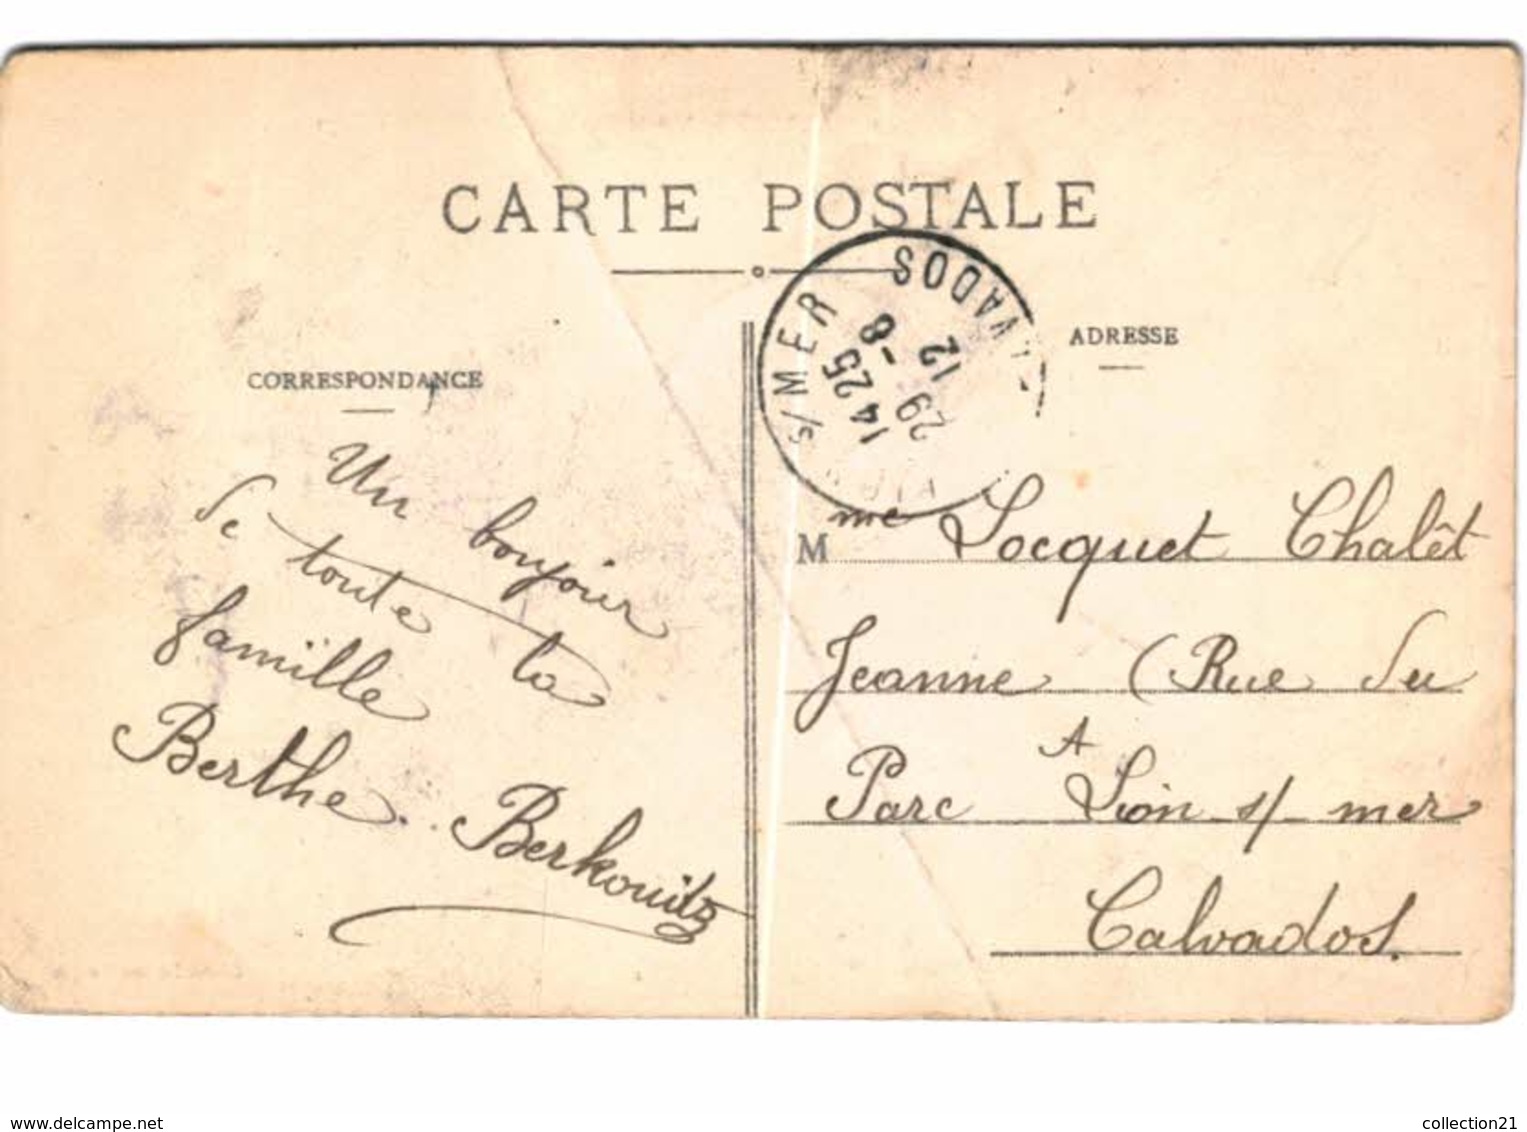 CARTE POSTALE
CORRESPONDANCE
Un bonjour
de toute la
famille
Berthe. Berkowitz
S/MER
CALVADOS
14 25
29 -8
12
ADRESSE
Mme Locquet Chalêt
Jeanne (Rue du
Parc A Lion s/ mer
Calvados.
www.delcampe.net
collection21